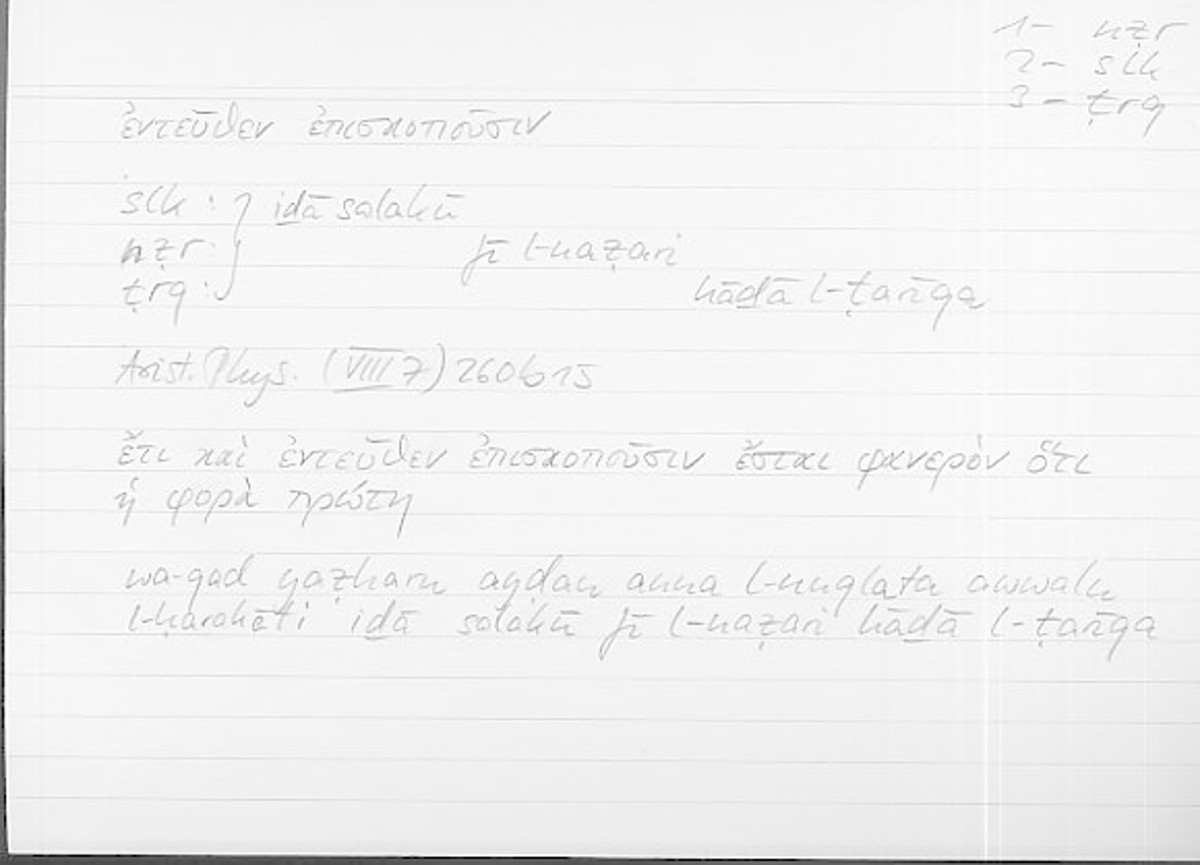 1- nẓr
2- slk
3- ṭrq
ἐντεῦθεν ἐπισκοποῦσιν
slk : } iḏā salakū
nẓr : fī l-naẓari
ṭrq : hāḏā l-ṭarīqa
Arist. Phys. (VIII 7) 260b15
ἔτι καὶ ἐντεῦθεν ἐπισκοποῦσιν ἔσται φανερὸν ὅτι
ἡ φορὰ πρώτη
wa-qad yaẓharu ayḍan anna l-nuqlata awwalu
l-ḥarakāti iḏā salakū fī l-naẓari hāḏā l-ṭarīqa